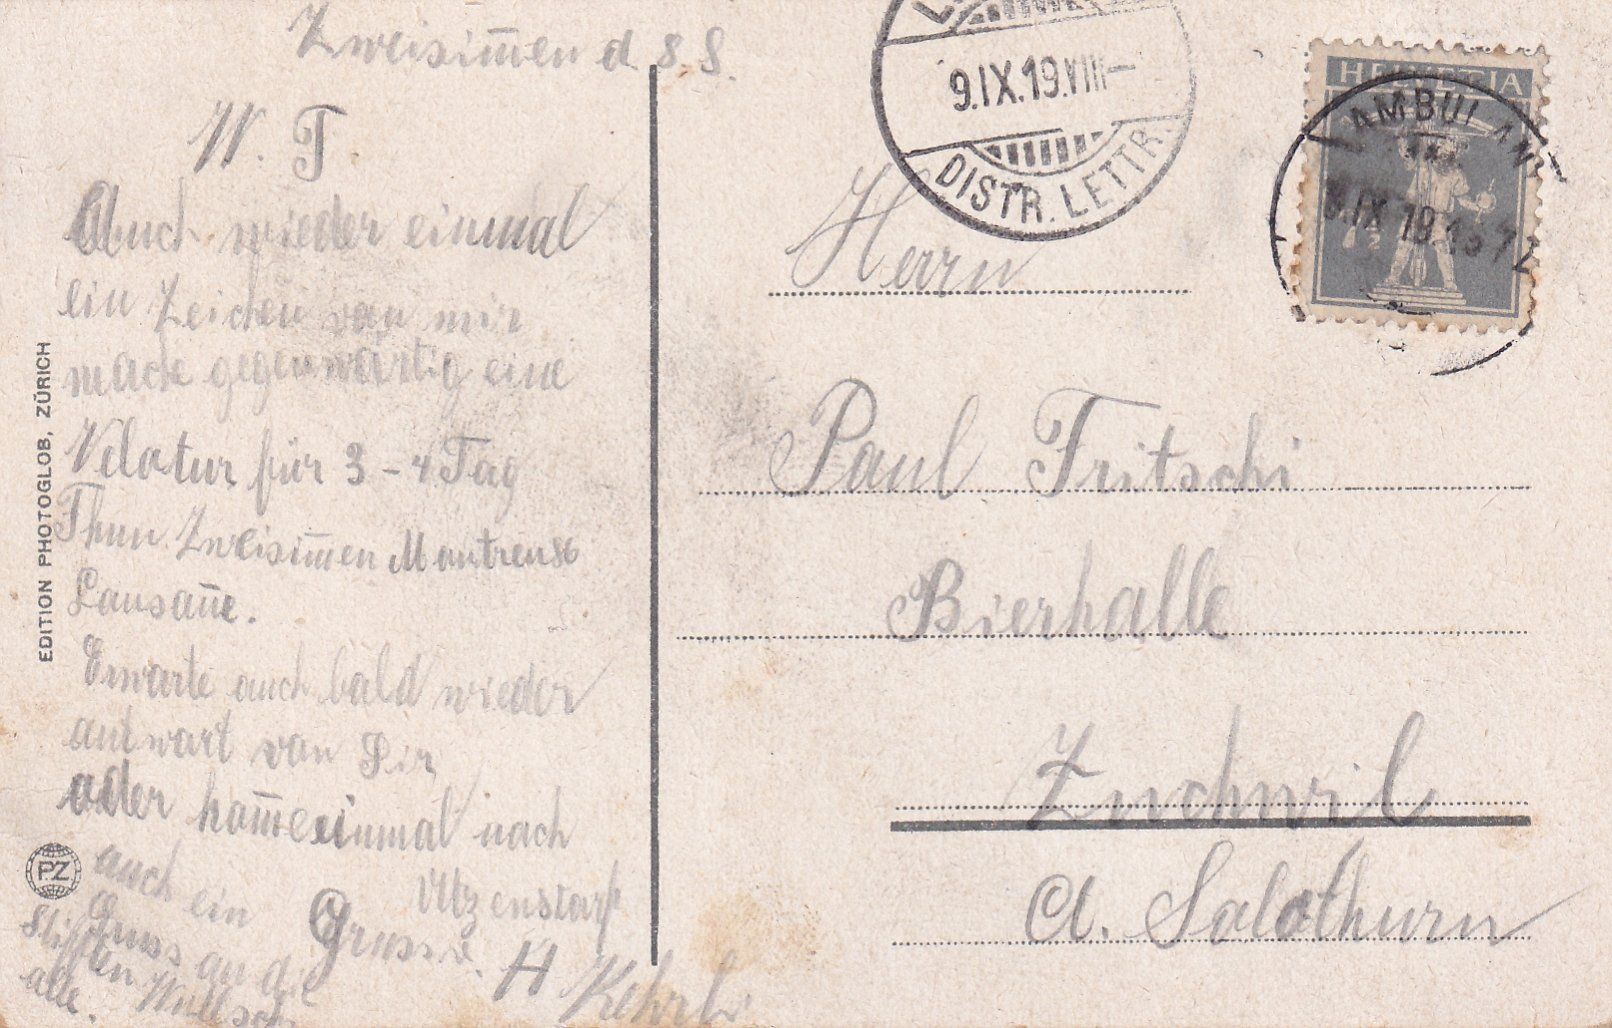 Zweisim̅en d. 8. S.
W. F.
Auch wieder einmal
ein Zeichen von mir
mache gegenwärtig eine
Velotur für 3-4 Tag
Thun Zweisim̅en Montreux
Lausan̅e.
Erwarte auch bald wieder
antwort von Dir
oder kom̅e einmal nach
Utzenstorf
Grusse. H Kehrli
auch ein
Gruss an die
alle.
EDITION PHOTOGLOB, ZÜRICH
PZ
9.IX.19.VIII-
DISTR. LETTR.
HELVETIA
7½
AMBULANT
IX 19
Herrn
Paul Fritschi
Bierhalle
Zuchwil
Ct. Solothurn